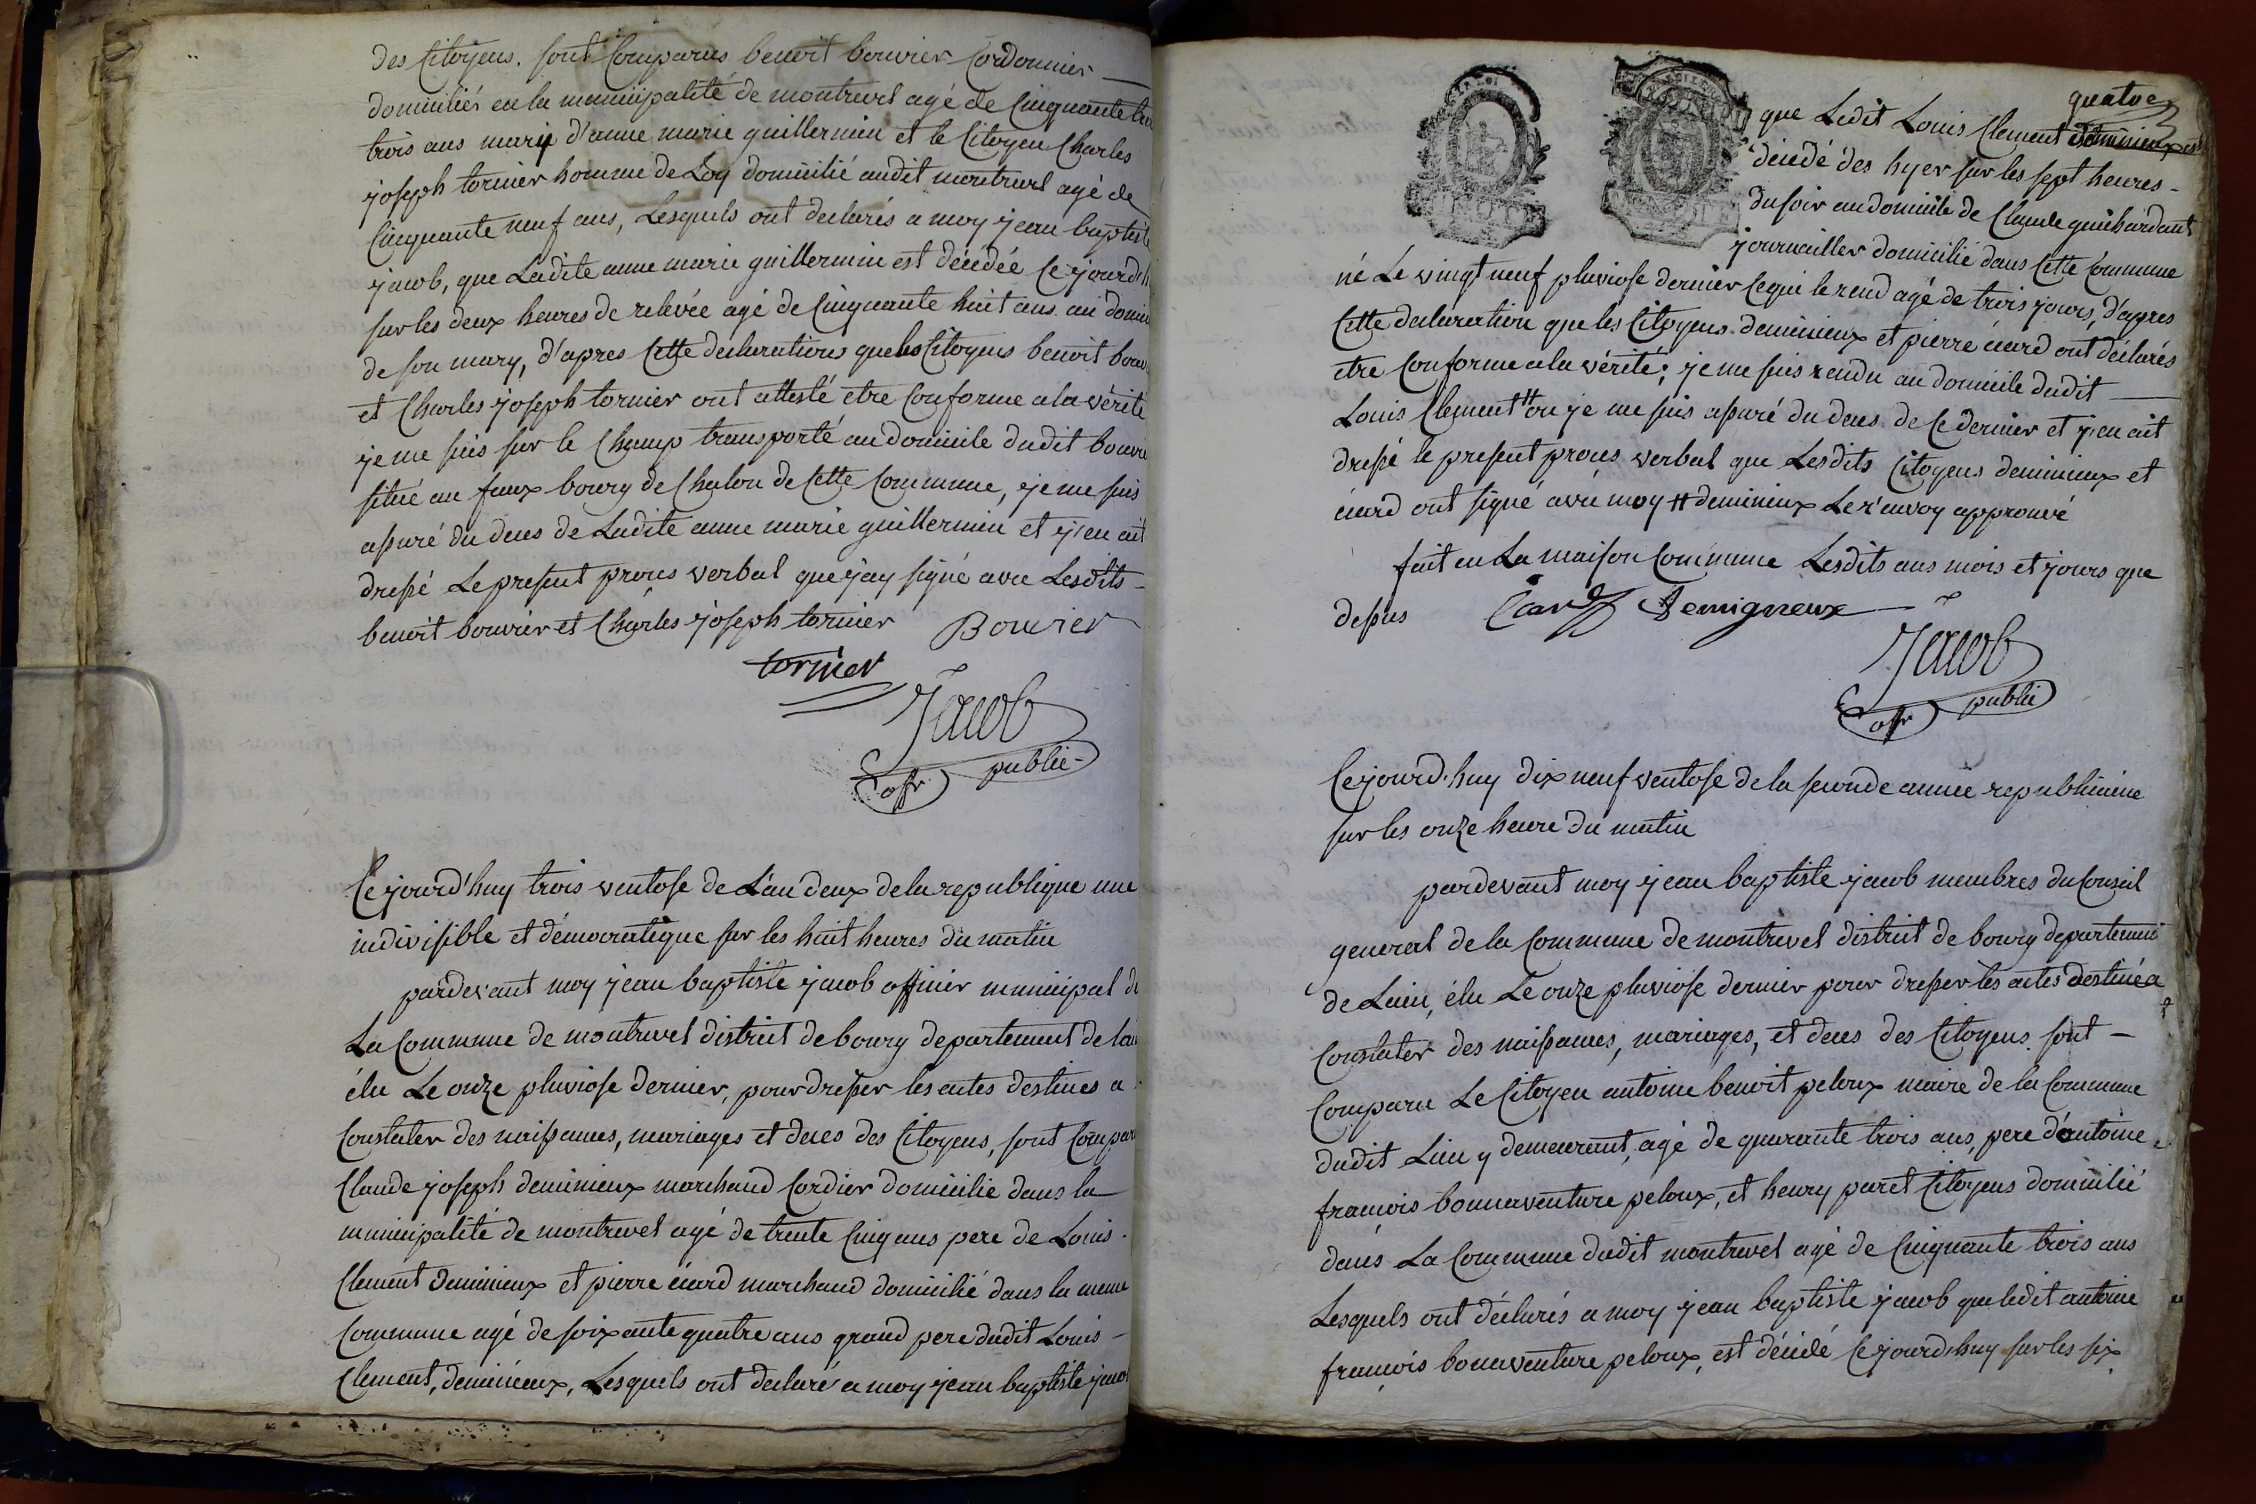 des Citoyens. sont Comparus benoit bouvier Cordonnier
domiciliés en la municipalité de montrevel agé de Cinquante
trois ans mary d'anne marie guillermin et le Citoyen Charles
joseph tornier homme de Loy domicilié audit montrevel agé de
Cinquante neuf ans, Lesquels ont declarés a moy jean baptiste
jacob, que Ladite anne marie guillermin est décédée Ce jourd'h
sur les deux heures de relevée agé de Cinquante huit ans au domi
de son mary, d'apres Cette declarations que les Citoyens benoit bouv
et Charles joseph tornier ont attesté etre Conforme a la vérité
je me suis sur le Champ transporté au domicile dudit bouvie
situé au faux bourg de Chalon de Cette Commune, je me suis
assuré du deces de Ladite anne marie guillermin et j'en ait
dressé Le present proces verbal que j'ay signé avec Lesdits
benoit bouvier et Charles joseph tornier Bouvier
tornier
Jacob
offr public
Ce jourd'huy trois ventose de L'an deux de la republique une
indivisible et démocratique sur les huit heures du matin
pardevant moy jean baptiste jacob officier municipal de
La Commune de montrevel district de bourg departement de lai
élu Le onze pluviose dernier, pour dresser les actes destines a
Constater des naissances, mariages et deces des Citoyens, sont Compar
Claude joseph deminieux marchand Cordier domicilié dans la
municipalité de montrevel agé de trente Cinq ans pere de Louis
Clement deminieux et pierre écard marchand domicilié dans la meme
Commune agé de soixante quatre ans grand pere dudit Louis
Clement, deminieux, Lesquels ont declaré a moy jean baptiste jacob
quatre
que Ledit Louis Clement deminieux est
décédé des hyer sur les sept heures
du soir au domicile de Claude guichardant
journaillier domicilié dans Cette Commune
né Le vingt neuf pluviose dernier Cequi le rend agé de trois jours, d'apres
Cette declaration que les Citoyens deminieux et pierre écard ont déclarés
etre Conforme a la vérité; je me suis rendu au domicile dudit
Louis Clement # ou je me suis assuré du deces de Ce dernier et j'en ait
dressé le present proces verbal que Lesdits Citoyens deminieux et
écard ont signé avec moy # deminieux Le r'envoy approuvé
fait en La maison Commune Lesdits ans mois et jours que
dessus Card Demigneux
Jacob
offr public
Ce jourd'huy dix neuf ventose de la seconde année republicaine
sur les onze heure du matin
pardevant moy jean baptiste jacob membres du Conseil
general de la Commune de montrevel district de bourg departement
de Lain, élu Le onze pluviose dernier pour dresser les actes destiné a
Constater des naissances, mariages, et deces des Citoyens. sont
Comparu Le Citoyen antoine benoit peloux maire de la Commune
dudit Lieu y demeurant, agé de quarante trois ans, pere d'antoine
francois bonnaventure peloux, et henry paret Citoyens domicilié
dans La Commune dudit montrevel agé de Cinquante trois ans
Lesquels ont déclarés a moy jean baptiste jacob que ledit antoine
francois bonaventure peloux, est décédé Ce jourd'huy sur les six